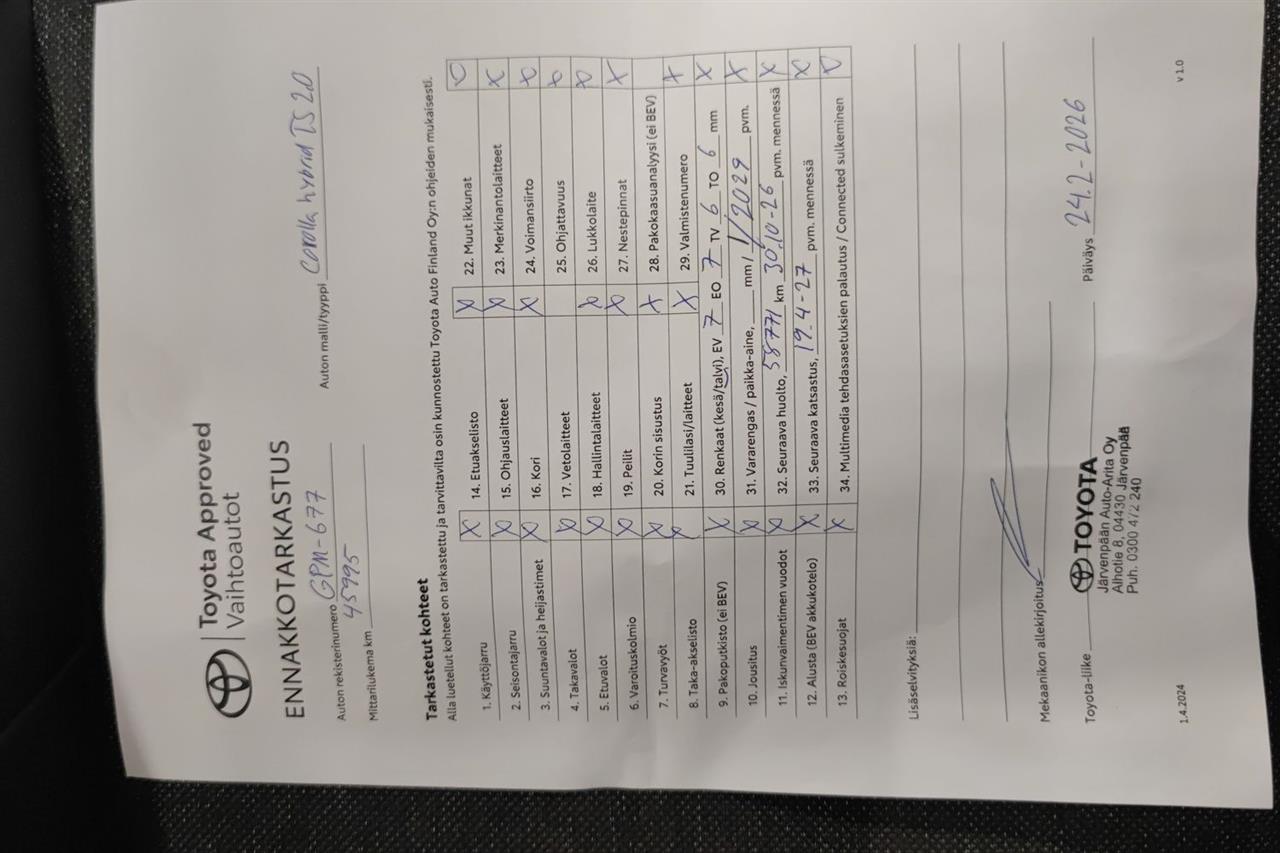 Toyota Approved
Vaihtoautot
ENNAKKOTARKASTUS
Auton rekisterinumero GPM-677 Auton malli/tyyppi Corolla hybrid TS 20
Mittarilukema km 45995
Tarkastetut kohteet
Alla luetellut kohteet on tarkastettu ja tarvittavilta osin kunnostettu Toyota Auto Finland Oy:n ohjeiden mukaisesti.
1. Käyttöjarru X 14. Etuakselisto X 22. Muut ikkunat X
2. Seisontajarru X 15. Ohjauslaitteet X 23. Merkinantolaitteet X
3. Suuntavalot ja heijastimet X 16. Kori X 24. Voimansiirto X
4. Takavalot X 17. Vetolaitteet 25. Ohjattavuus X
5. Etuvalot X 18. Hallintalaitteet X 26. Lukkolaite X
6. Varoituskolmio X 19. Peilit X 27. Nestepinnat X
7. Turvavyöt X 20. Korin sisustus X 28. Pakokaasuanalyysi (ei BEV)
8. Taka-akselisto X 21. Tuulilasi/laitteet X 29. Valmistenumero X
9. Pakoputkisto (ei BEV) X 30. Renkaat (kesä/talvi), EV 7 EO 7 TV 6 TO 6 mm X
10. Jousitus X 31. Vararengas / paikka-aine, mm / 1/2029 pvm. X
11. Iskunvaimentimen vuodot X 32. Seuraava huolto, 58771 km 30.10-26 pvm. mennessä X
12. Alusta (BEV akkukotelo) X 33. Seuraava katsastus, 19.4-27 pvm. mennessä X
13. Roiskesuojat X 34. Multimedia tehdasasetuksien palautus / Connected sulkeminen X
Lisäselvityksiä:
Mekaanikon allekirjoitus
Toyota-liike TOYOTA Päiväys 24.2-2026
Järvenpään Auto-Arita Oy
Alhotie 8, 04430 Järvenpää
Puh. 0300 472 240
1.4.2024 v 1.0